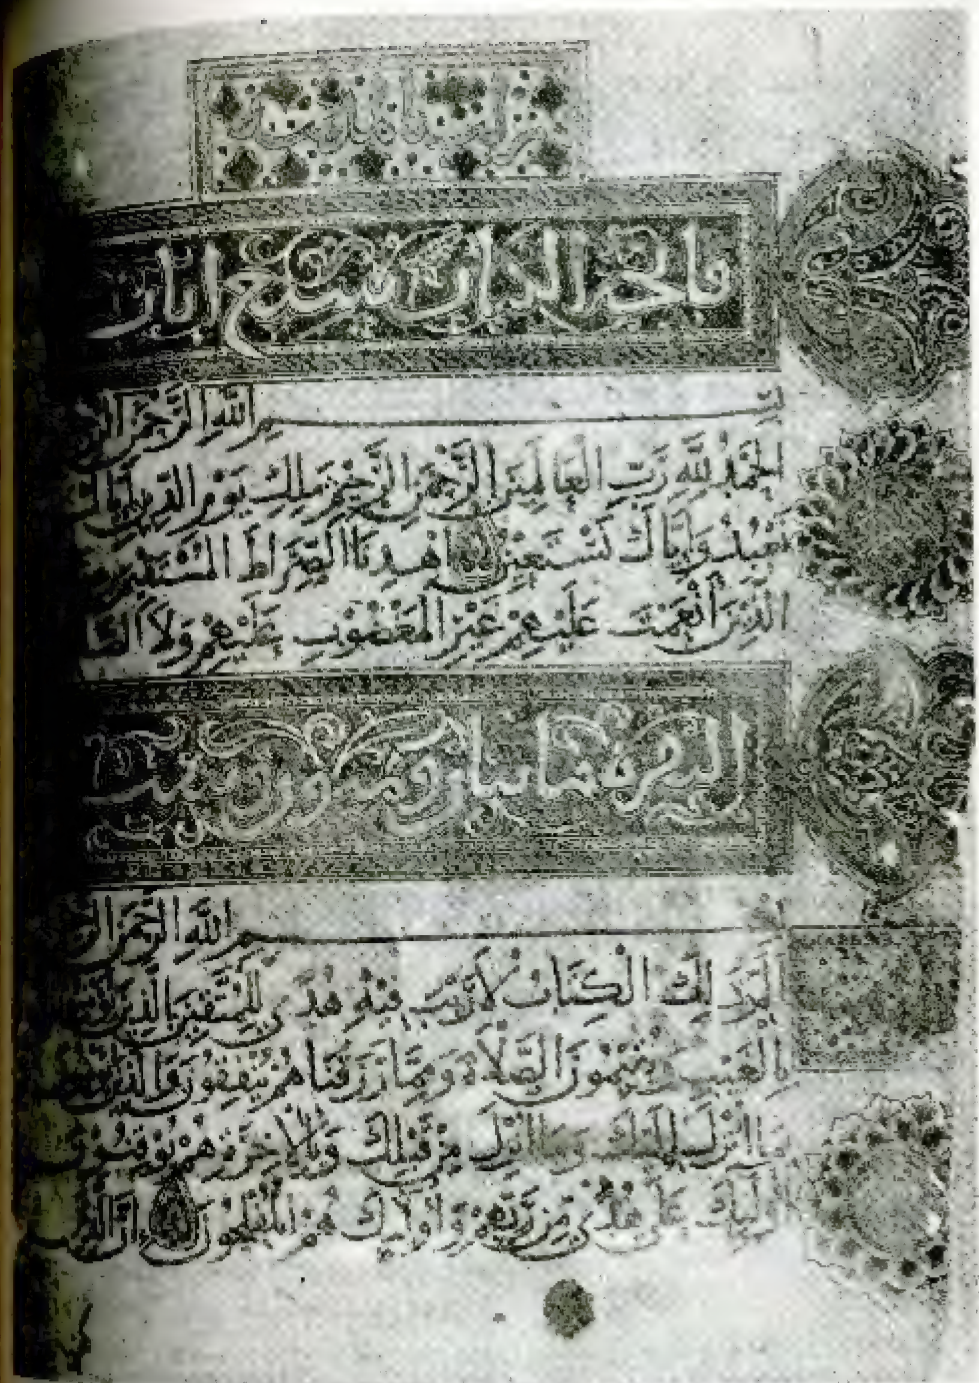 فاتحة الكتاب سبع ايات
بسم الله الرحمن
الحمد لله رب العالمين الرحمن الرحيم ملك يوم الدين اياك
نعبد واياك نستعين اهدنا الصراط المستقيم
الذين انعمت عليهم غير المغضوب عليهم ولا
البقرة مايتان وثمانون
بسم الله الرحمن
الم ذلك الكتاب لا ريب فيه هدى للمتقين الذين
بالغيب ويقيمون الصلاة ومما رزقناهم ينفقون والذين
بما انزل اليك وما انزل من قبلك وبالاخرة هم يوقنون
اوليك على هدى من ربهم واوليك هم المفلحون ان الذين